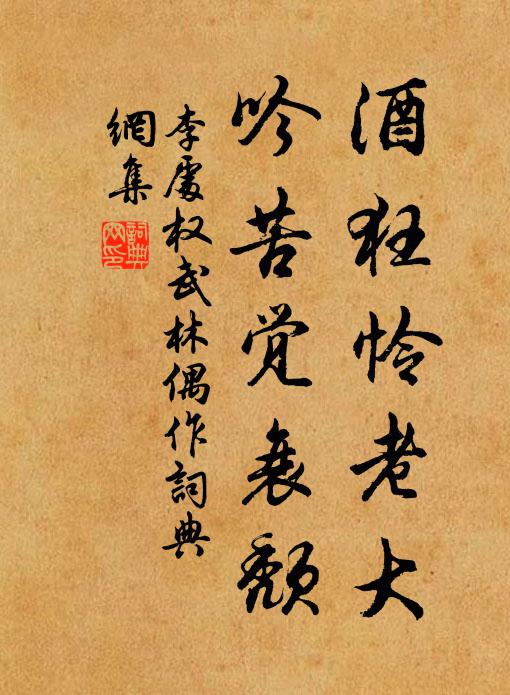 酒狂怜老大
吟苦觉衰颓
李處权武林偶作詞典
網集
詞典
网印